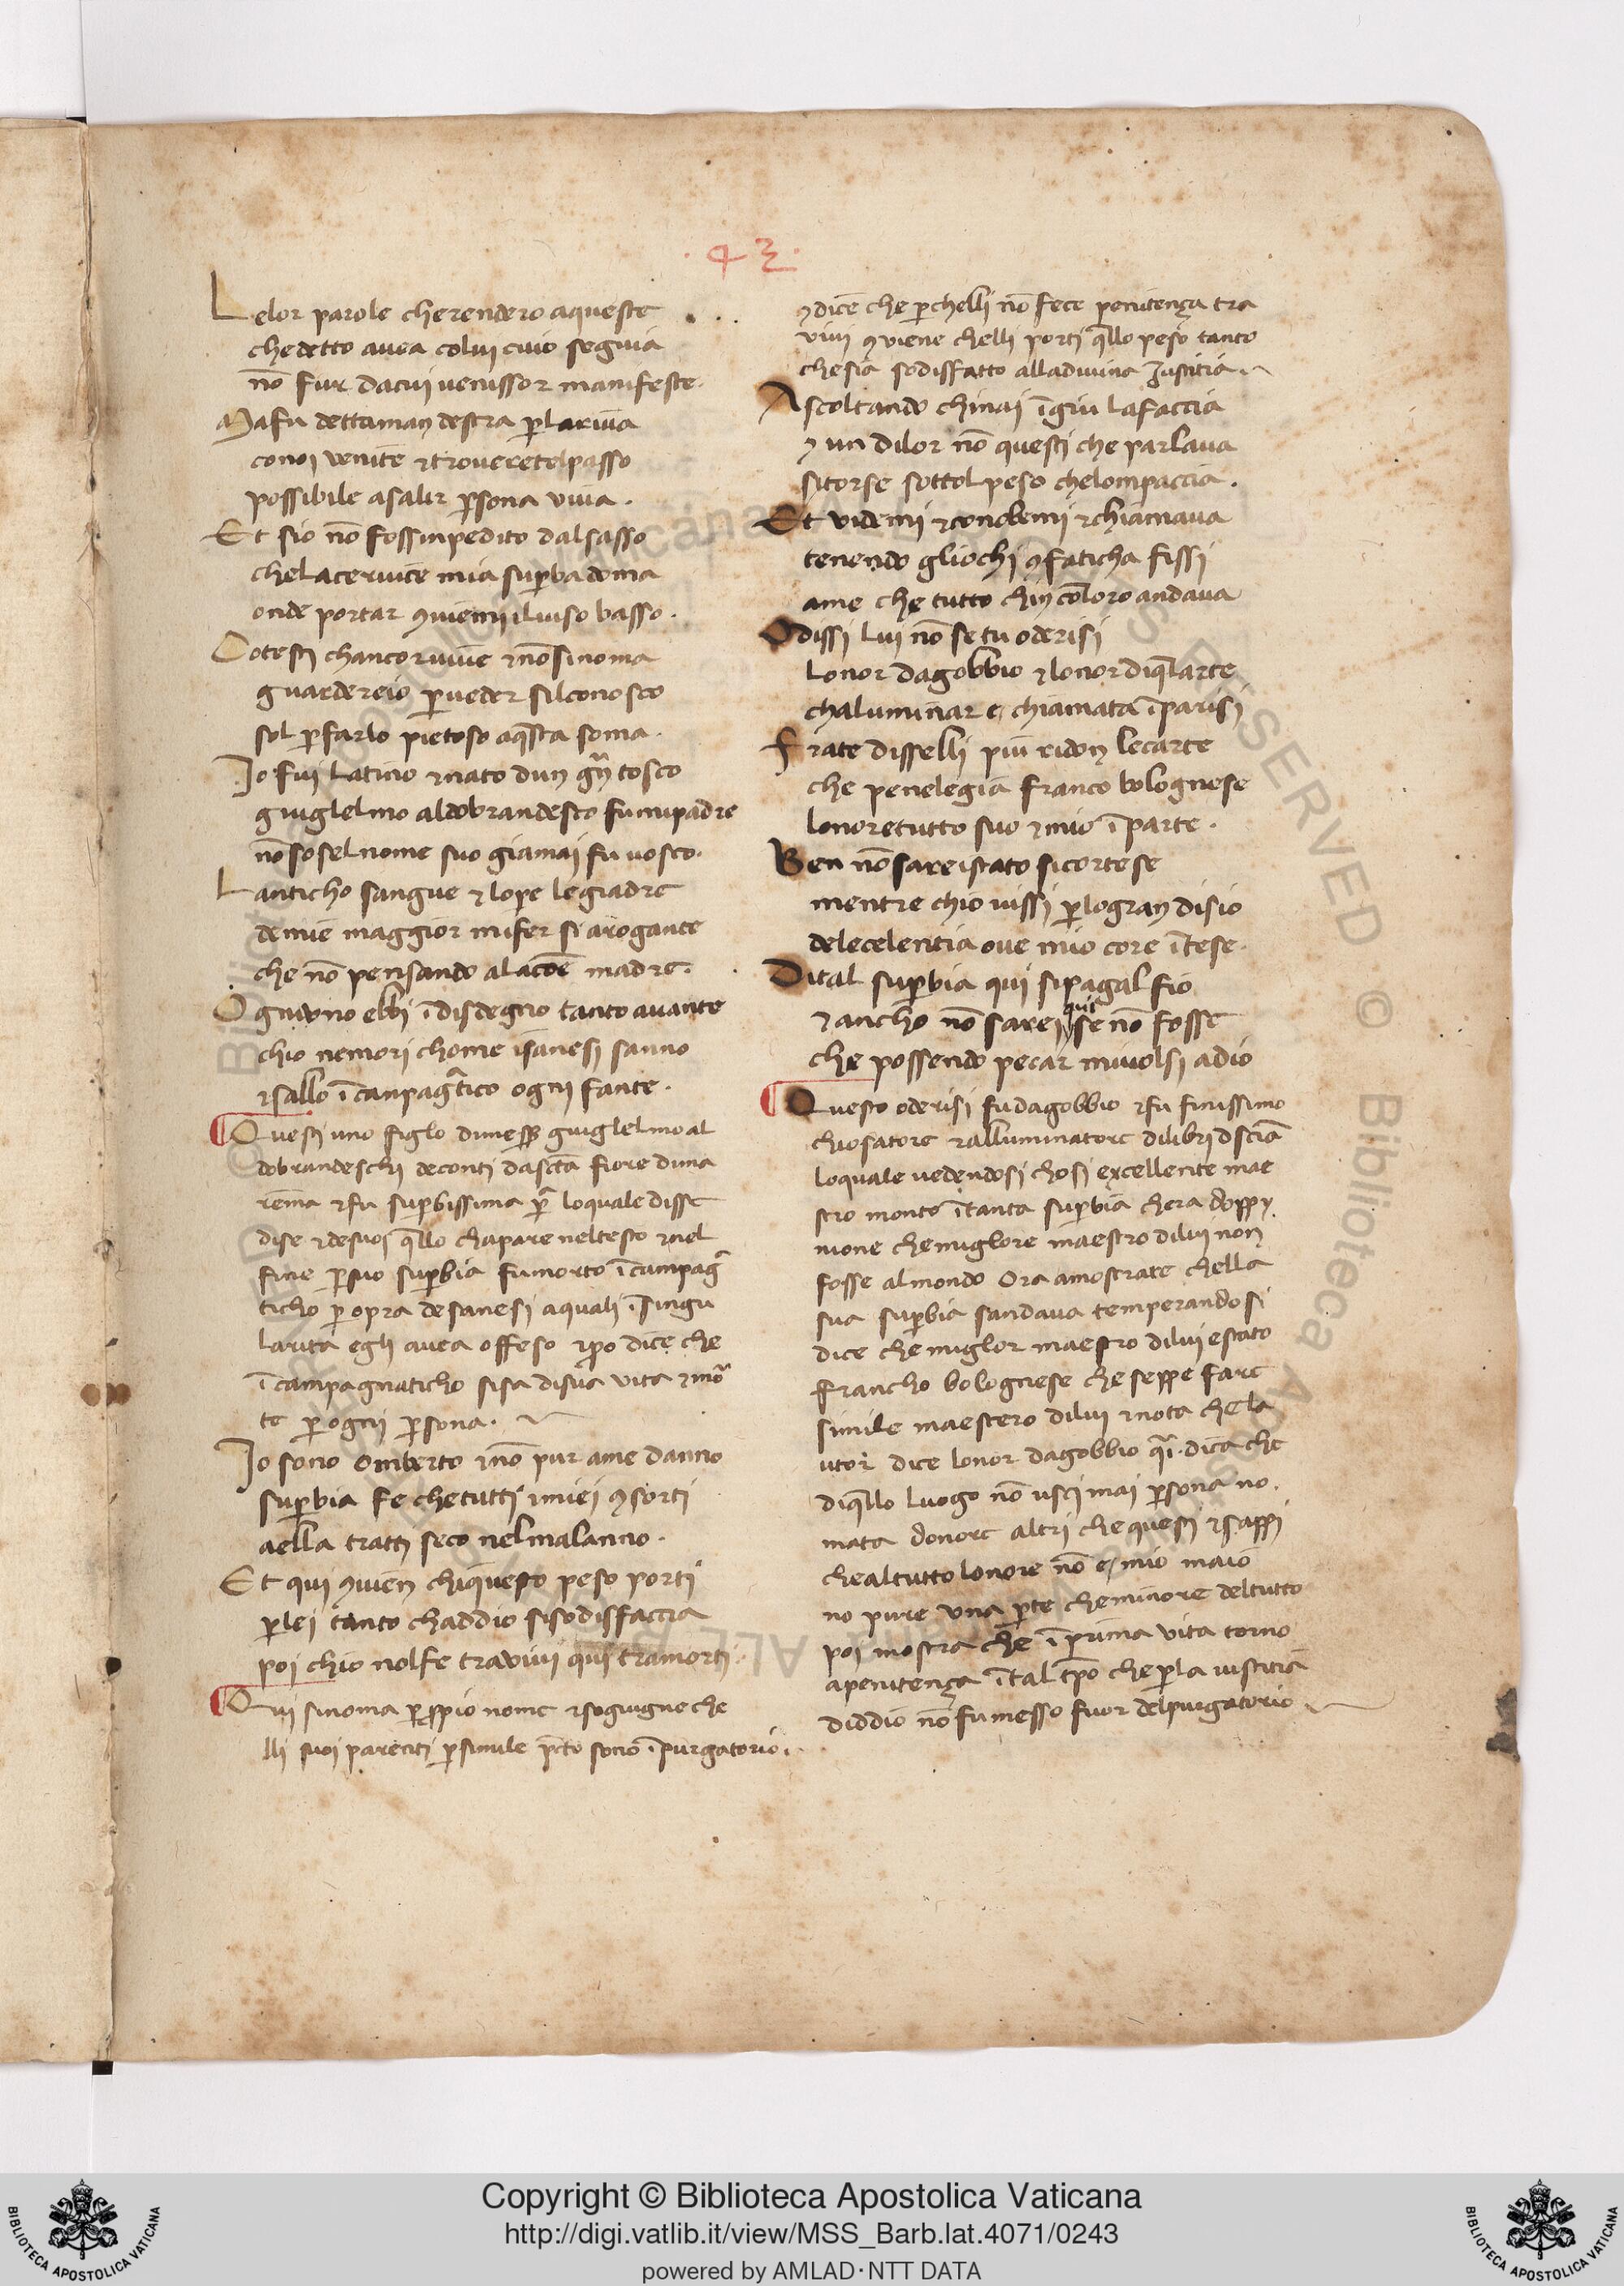 .43.
Lelor parole cherendero aqueste
chedetto avea colui cuio seguia
nō fur dacui venissor manifeste.
Mafu dettaman destra p̱larivā
conoi venite ⁊troveretelpasso
possibile asalir p̱sona viva.
Et sio nō fossinpedito dalsasso
chelacervice mia sup̱badoma
onde portar ꝯviēmi ilviso basso.
Cotesti chancorvive ⁊nōsinoma
guardereio p̱veder silconosco
sol p̱farlo pietoso aq̄sta soma.
Io fui latino ⁊nato dun gn̄ tosco
guiglelmo aldobrandesco fumipadre
nōsosel nome suo giamai fu vosco.
Lanticho sangue ⁊lope legiadre
demiē maggior mifer si arogante
che nō pensando alacōe madre.
Ogniuno ebbi ī disdegno tanto avante
chio nemori chome isanesi sanno
⁊sallo ī canpagn̄tico ogni fante.
Questi uno figlo dimess̄ guiglelmoal
dobrandeschi deconti dasc̄ta fiore duna
rēma ⁊fu sup̱bissima p̱ loquale disse
dise ⁊desuoi q̄llo chapare neltesto ⁊nel
fine p̱suo sup̱bia fumorto ī campaḡ
ticho p̱ opra desanesi aquali īsingu
larita egli avea offeso ⁊p̱o dice che
ī campagnaticho sisa disua vita ⁊mō
te p̱ ogni p̱sona.
Io sono omberto ⁊nō pur ame danno
sup̱bia fe chetutti imiei ꝯsorti
aella tratti seco nelmalanno.
Et qui ꝯvien chiquesto peso porti
p̱lei tanto chaddio sisodisfaccia
poi chio nolfe travivi qui tramorti.
Qui sinoma p̱ p̱pio nome ⁊sogiugne che
lli suoi parenti p̱simile pc̄to sono ī purgatorio.
⁊dice che p̱chelli nō fece penitença tra
vivi ꝯviene chelli porti q̄llo peso tanto
chesia sodisfatto alladivina Iustitia.
Ascoltando chinai īgiu lafaccia
⁊ un dilor nō questi che parlava
sitorse sottol peso chelompaccia.
Et videmi ⁊conobemi ⁊chiamava
tenendo gliochi ꝯfaticha fissi
ame che tutto chin cōloro andava
Odissi lui nō se tu oderisi
lonor dagobbio ⁊lonor diq̄larte
chaluminar e chiamata īparisi
Frate disselli piu ridon lecarte
che penelegia franco bolognese
lonoretutto suo ⁊mio ī parte.
Ben nōsareistato sicortese
mentre chio vissi p̱logran disio
delecelentia ove mio core ītese.
Dital sup̱bia qui sipagal fio
⁊ancho nō sarei qui se nō fosse
che possendo pecar mivolsi adio
Questo oderisi fudagobbio ⁊fu finissimo
chiosatore ⁊alluminatore dilibri dsciā
loquale vedendosi chosi excellente mae
stro monto ītanta sup̱bia chera doppi
nione chemiglore maestro dilui non
fosse almondo Ora amostrare chella
sua sup̱bia sandava temperandosi
dice che miglor maestro dilui estato
francho bolognese cheseppe fare
simile maestero dilui ⁊nota chela
utor dice lonor dagobbio q̄i. dica che
diq̄llo luogo nō usci mai p̱sona no.
mata donore altri che questi ⁊sappi
chealtutto lonore nō e mio maio
no pure una p̱te cheminore deltutto
poi mostra che ī prima vita torno
apenitença ītal tp̄o chep̱la iustitia
diddio nō fumesso fuor delpurgatorio
Copyright © Biblioteca Apostolica Vaticana
http://digi.vatlib.it/view/MSS_Barb.lat.4071/0243
powered by AMLAD·NTT DATA
BIBLIOTECA APOSTOLICA VATICANA
BIBLIOTECA APOSTOLICA VATICANA